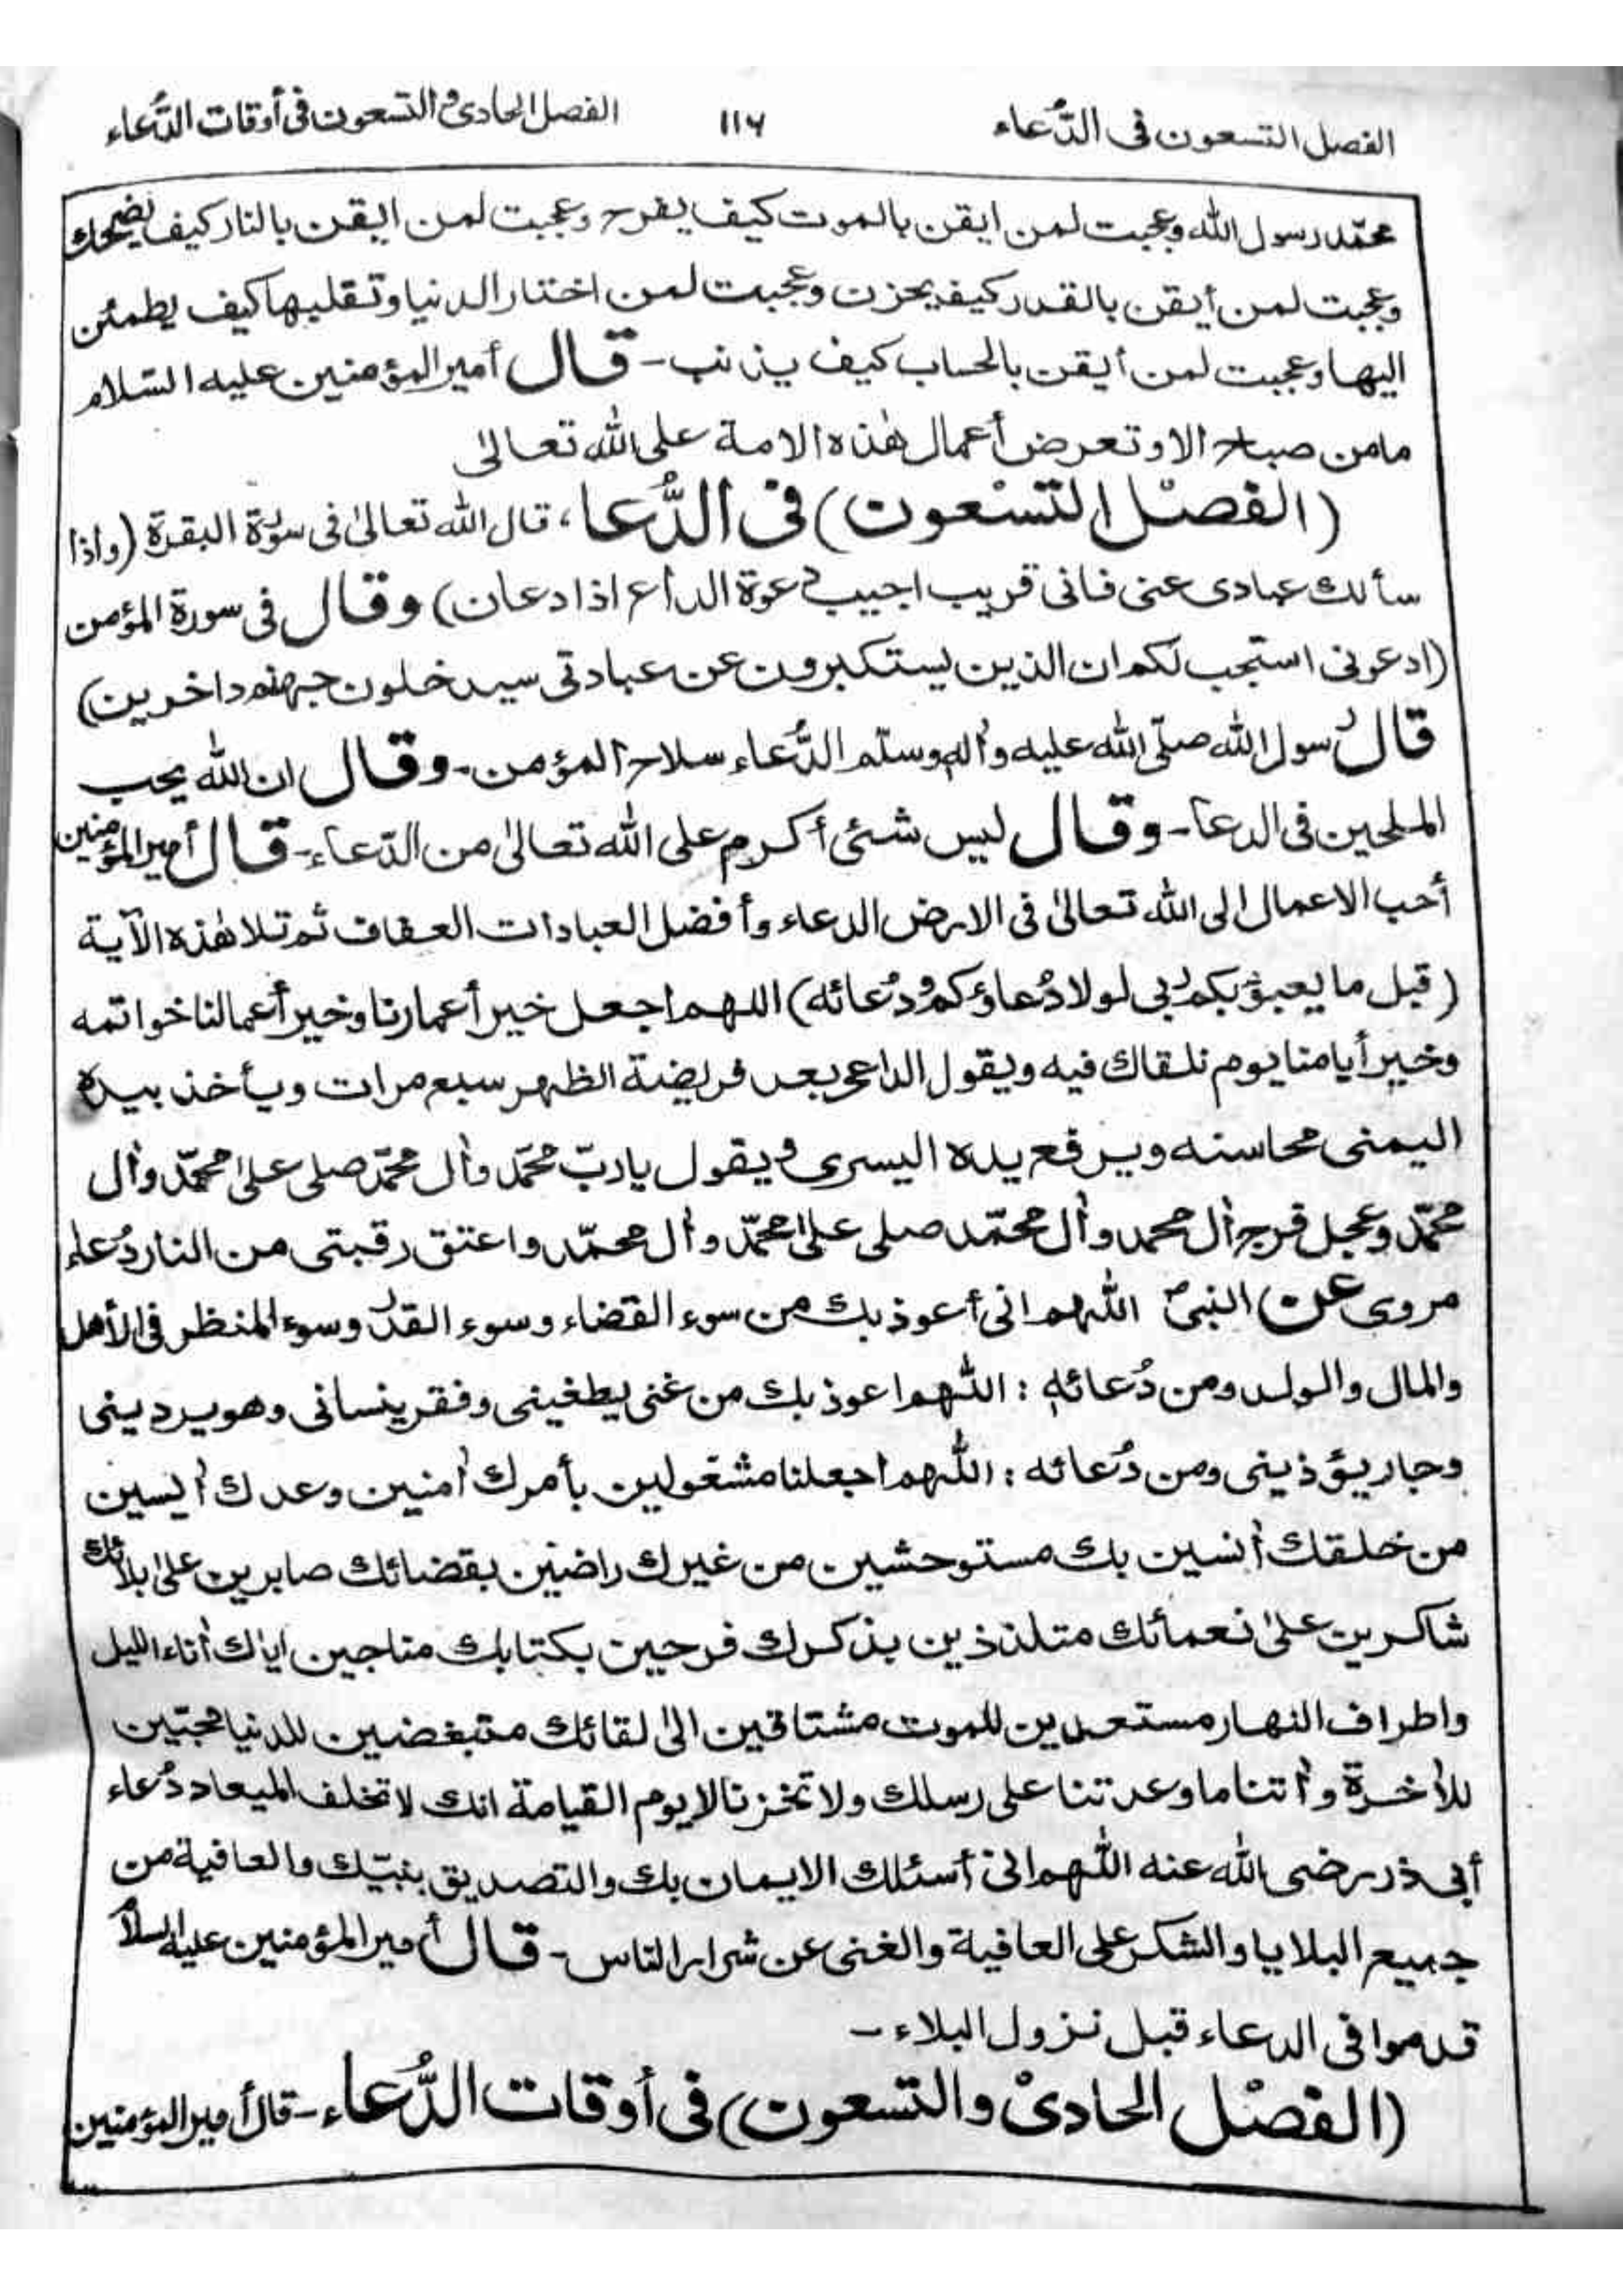 الفصل التسعون فى الدُّعاء ١١٧ الفصل الحادى و التسعون فى أوقات الدُّعاء
محمّد رسول الله وعجبت لمن ايقن بالموت كيف يفرح وعجبت لمن ايقن بالنار كيف يضحك
وعجبت لمن أيقن بالقدر كيف يحزن وعجبت لمن اختار الدنيا وتقلبها كيف يطمئن
اليها وعجبت لمن أيقن بالحساب كيف يذنب - قال أمير المؤمنين عليه السّلام
مامن صباح الا وتعرض أعمال هٰذه الامة على الله تعالىٰ
(الفصل التسعون) فى الدُّعا، قال الله تعالىٰ فى سورة البقرة (واذا
سألك عبادى عنى فانى قريب اجيب دعوة الداع اذا دعان) وقال فى سورة المؤمن
(ادعونى استجب لكم ان الذين يستكبرون عن عبادتى سيدخلون جهنم داخرين)
قال رسول الله صلّى الله عليه وآله وسلّم الدُّعاء سلاح المؤمن - وقال ان الله يحب
الملحين فى الدعا - وقال ليس شئى أكرم على الله تعالىٰ من الدّعاء - قال أمير المؤمنين
أحب الاعمال الى الله تعالىٰ فى الارض الدعاء وأفضل العبادات العفاف ثم تلا هٰذه الآية
(قبل ما يعبؤ بكم ربى لولا دُعاؤكم ودُعائه) اللهم اجعل خير أعمارنا وخير أعمالنا خواتمه
وخير أيامنا يوم نلقاك فيه ويقول الداعى بعد فريضة الظهر سبع مرات ويأخذ بيده
اليمنى محاسنه ويرفع يده اليسرى ويقول يا ربّ محمّد وآل محمّد صلى علىٰ محمّد وآل
محمّد وعجل فرج آل محمد وآل محمّد صلى علىٰ محمّد وآل محمّد واعتق رقبتى من النار دُعاء
مروى عن النبىؐ اللّٰهم انى أعوذ بك من سوء القضاء وسوء القدر وسوء المنظر فى الأهل
والمال والولد ومن دُعائه : اللّٰهم اعوذ بك من غنى يطغينى وفقر ينسانى وهو يردينى
وجار يؤذينى ومن دُعائه : اللّٰهم اجعلنا مشغولين بأمرك آمنين وعدك آيسين
من خلقك آنسين بك مستوحشين من غيرك راضين بقضائك صابرين علىٰ بلائك
شاكرين علىٰ نعمائك متلذذين بذكرك فرحين بكتابك مناجين اياك آناء الليل
واطراف النهار مستعدين للموت مشتاقين الىٰ لقائك متبغضين للدنيا محبّين
للآخرة وآتنا ما وعدتنا على رسلك ولا تخزنا لا يوم القيامة انك لا تخلف الميعاد دُعاء
أبى ذر رضى الله عنه اللّٰهم انى أسئلك الايمان بك والتصديق بنبيّك والعافية من
جميع البلايا والشكر على العافية والغنى عن شرار الناس - قال أمير المؤمنين عليه السلام
قدموا فى الدعاء قبل نزول البلاء -
(الفصل الحادىْ والتسعون) فى أوقات الدُّعاء - قال أمير المؤمنين